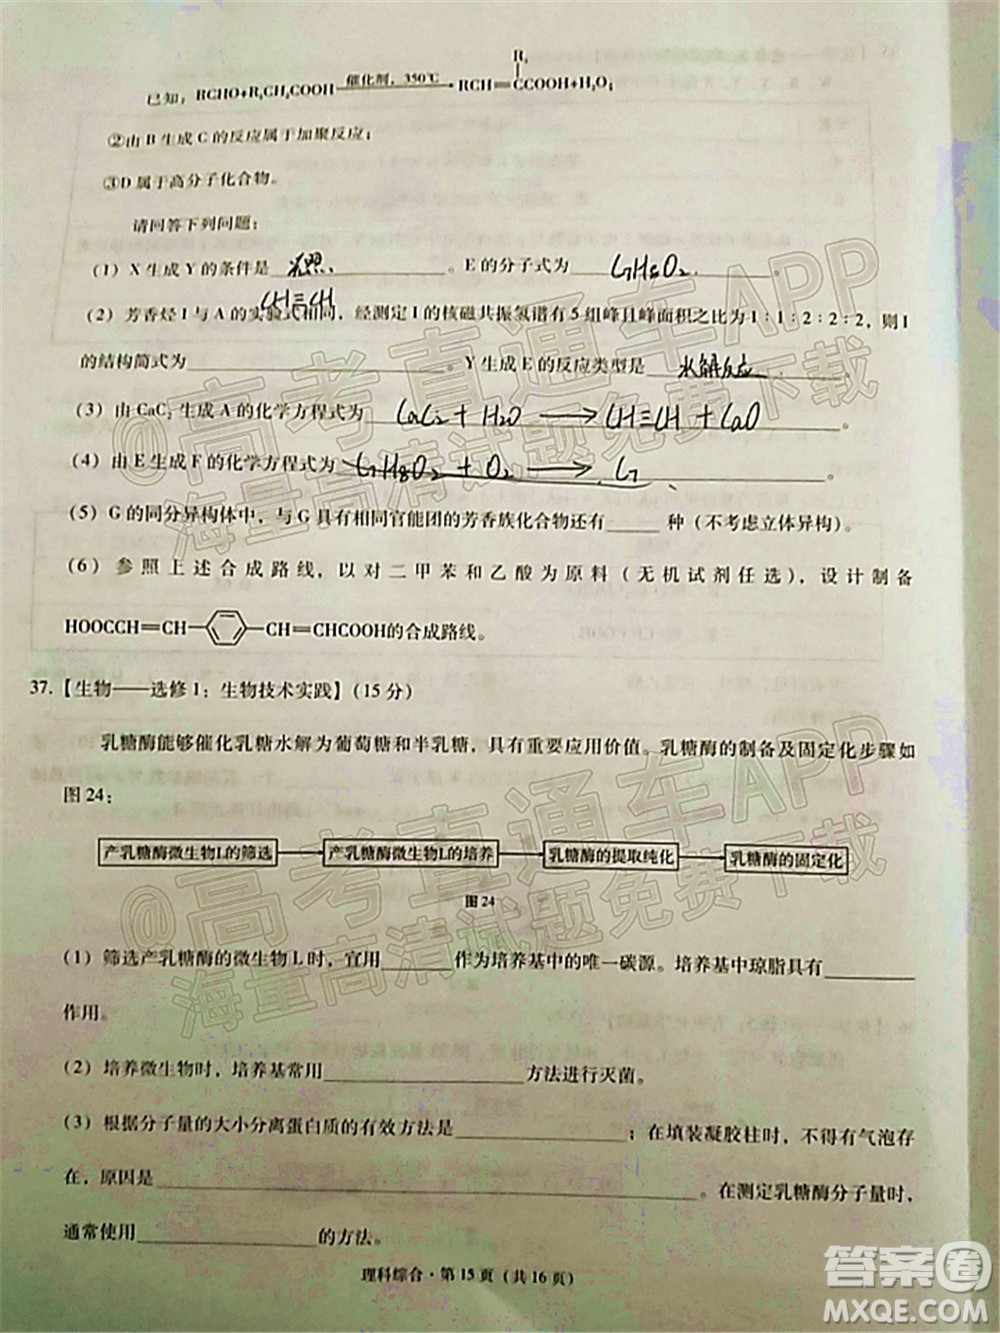 R₁
已知：RCHO+R₁CH₂COOH 催化剂，350℃ RCH═CCOOH+H₂O；
②由 B 生成 C 的反应属于加聚反应；
③D 属于高分子化合物。
请回答下列问题：
（1）X 生成 Y 的条件是 光照、 。E 的分子式为 C₇H₈O₂ 。
CH≡CH
（2）芳香烃 I 与 A 的实验式相同，经测定 I 的核磁共振氢谱有 5 组峰且峰面积之比为 1∶1∶2∶2∶2，则 I
的结构简式为 。Y 生成 E 的反应类型是 水解反应 。
（3）由 CaC₂ 生成 A 的化学方程式为 CaC₂ + H₂O → CH≡CH + CaO 。
（4）由 E 生成 F 的化学方程式为 C₇H₈O₂ + O₂ → C₇ 。
（5）G 的同分异构体中，与 G 具有相同官能团的芳香族化合物还有 种（不考虑立体异构）。
（6）参照上述合成路线，以对二甲苯和乙酸为原料（无机试剂任选），设计制备
HOOCCH═CH CH═CHCOOH的合成路线。
37.【生物——选修 1：生物技术实践】（15 分）
乳糖酶能够催化乳糖水解为葡萄糖和半乳糖，具有重要应用价值。乳糖酶的制备及固定化步骤如
图 24：
产乳糖酶微生物L的筛选 产乳糖酶微生物L的培养 乳糖酶的提取纯化 乳糖酶的固定化
图 24
（1）筛选产乳糖酶的微生物 L 时，宜用 作为培养基中的唯一碳源。培养基中琼脂具有
作用。
（2）培养微生物时，培养基常用 方法进行灭菌。
（3）根据分子量的大小分离蛋白质的有效方法是 ；在填装凝胶柱时，不得有气泡存
在，原因是 。在测定乳糖酶分子量时，
通常使用 的方法。
理科综合·第 15 页（共 16 页）
@高考直通车APP
海量高清试题免费下载
@高考直通车APP
海量高清试题免费下载
答案圈
MXQE.COM